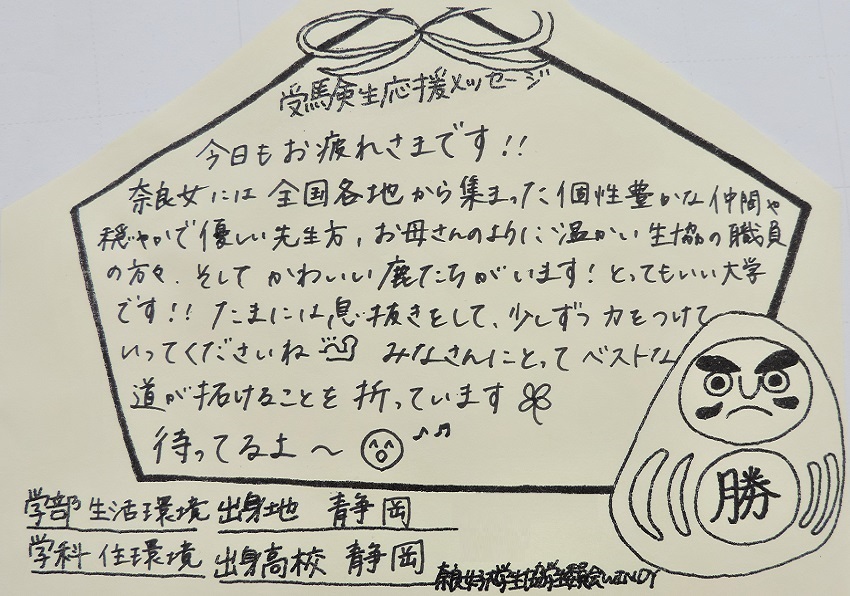 受験生応援メッセージ
今日もお疲れさまです!!
奈良女には全国各地から集まった個性豊かな仲間や
穏やかで優しい先生方、お母さんのように温かい生協の職員
の方々、そしてかわいい鹿たちがいます!とってもいい大学
です!!たまには息抜きをして、少しずつ力をつけて
いってくださいね みなさんにとってベストな
道が拓けることを折っています
待ってるよ～
勝
学部 生活環境 出身地 静岡
学科 住環境 出身高校 静岡
奈良女子大学生協学生委員会WINDY